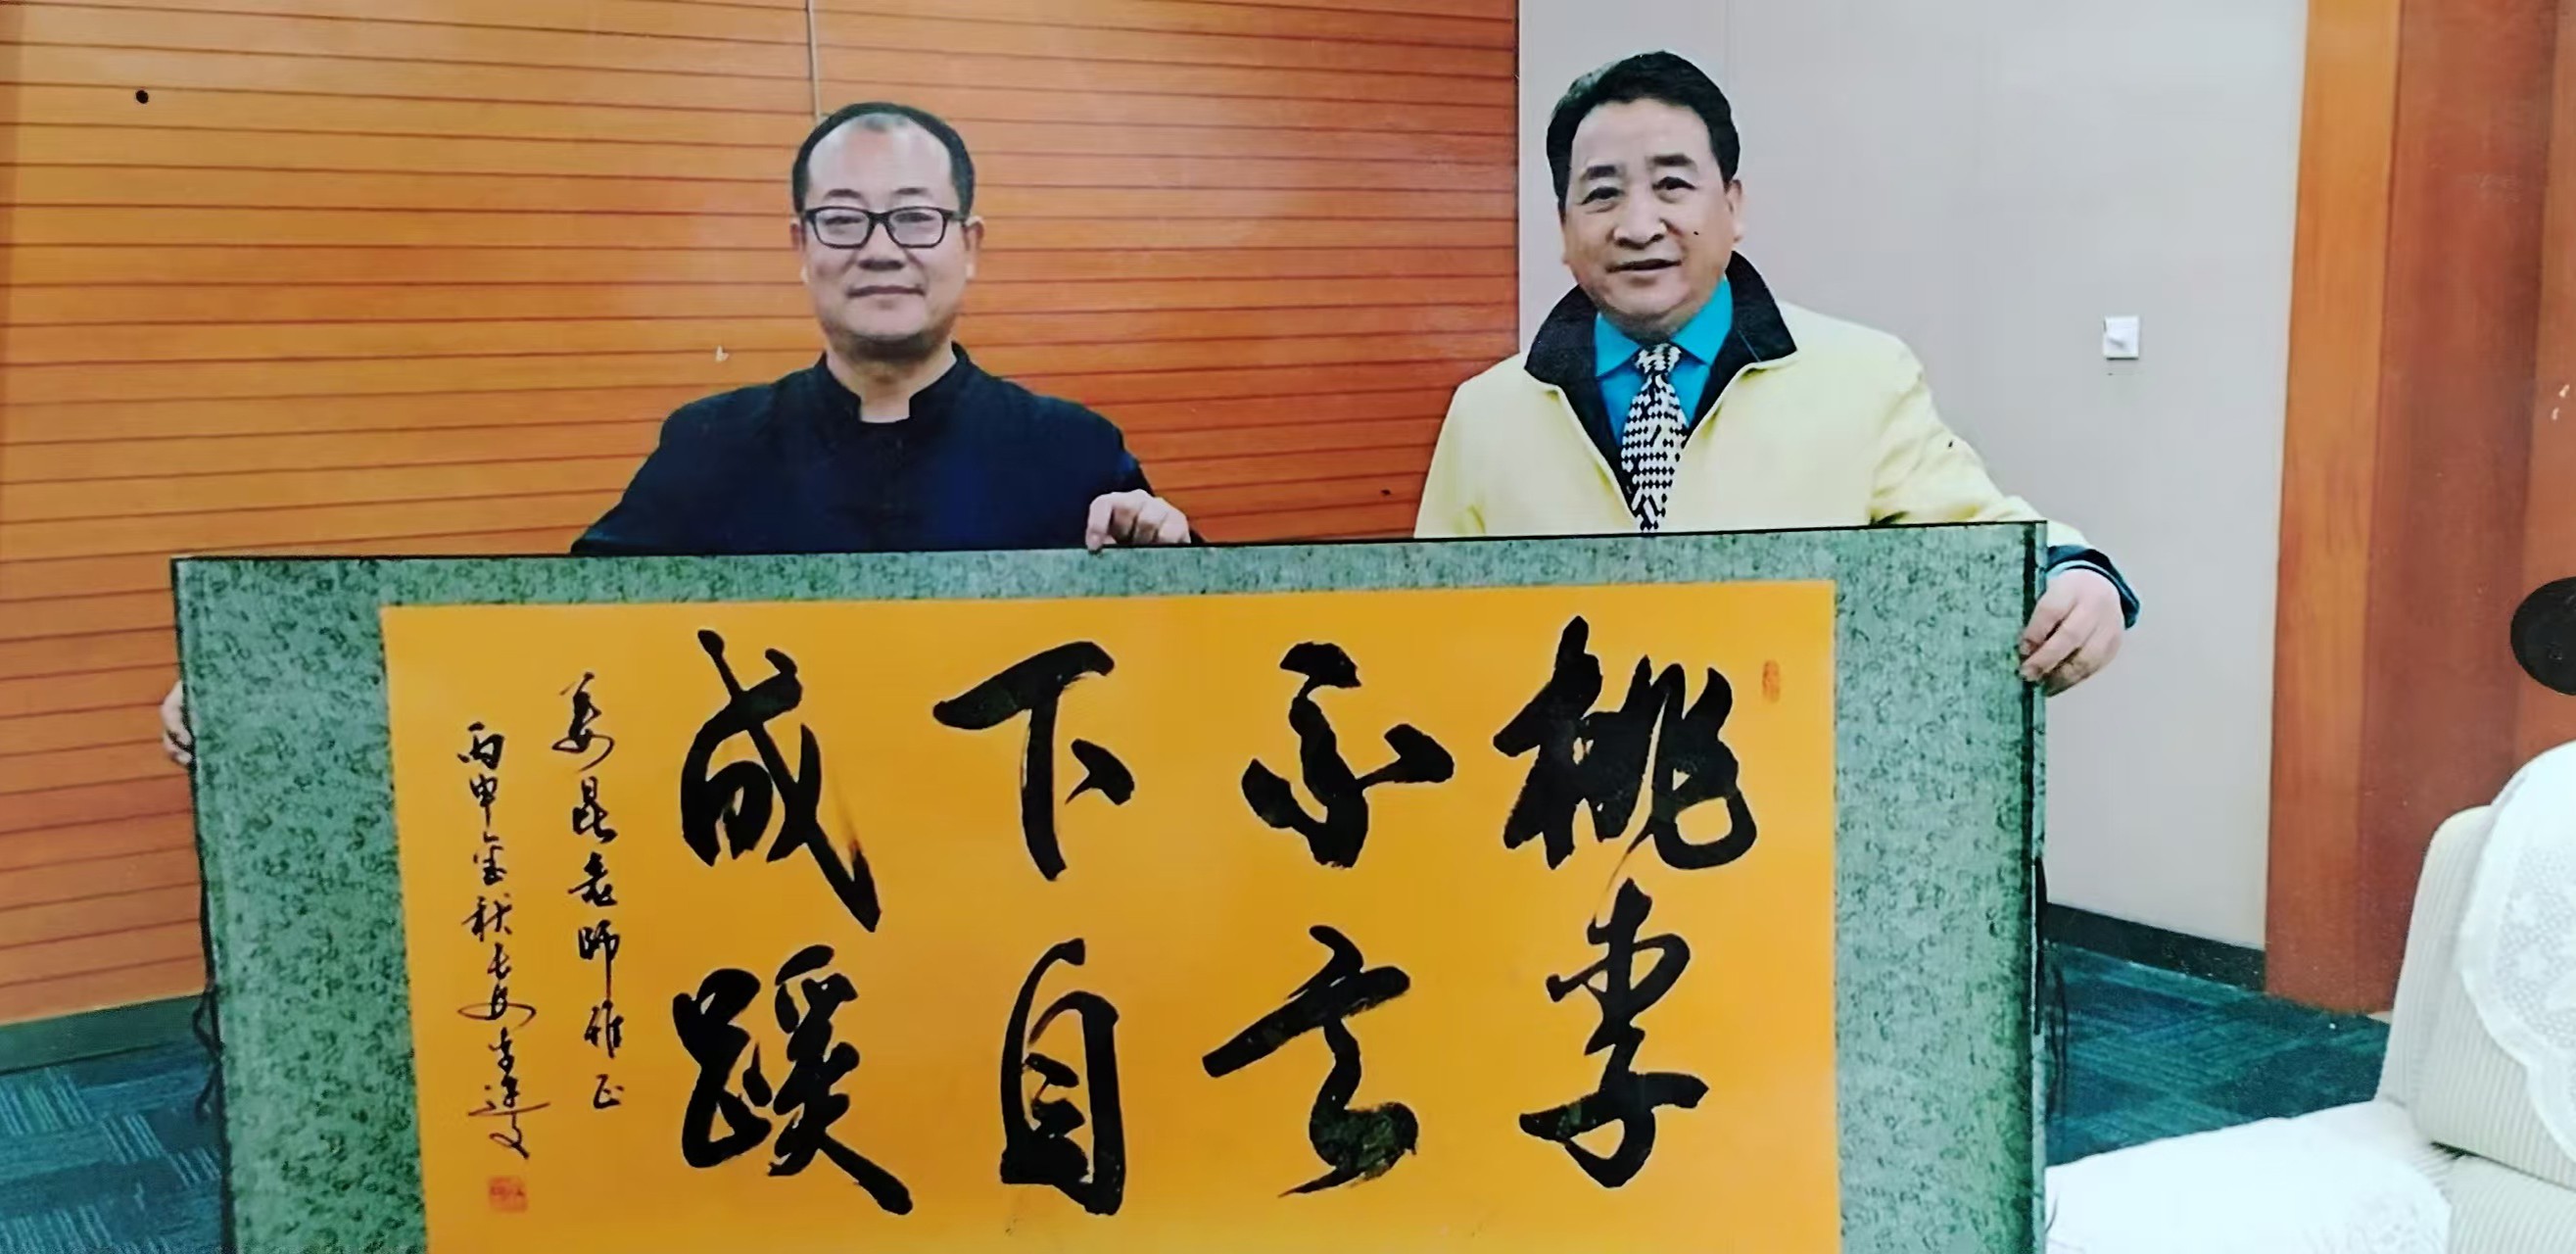 桃李
不言
下自
成蹊
姜昆老师雅正
丙申金秋长安